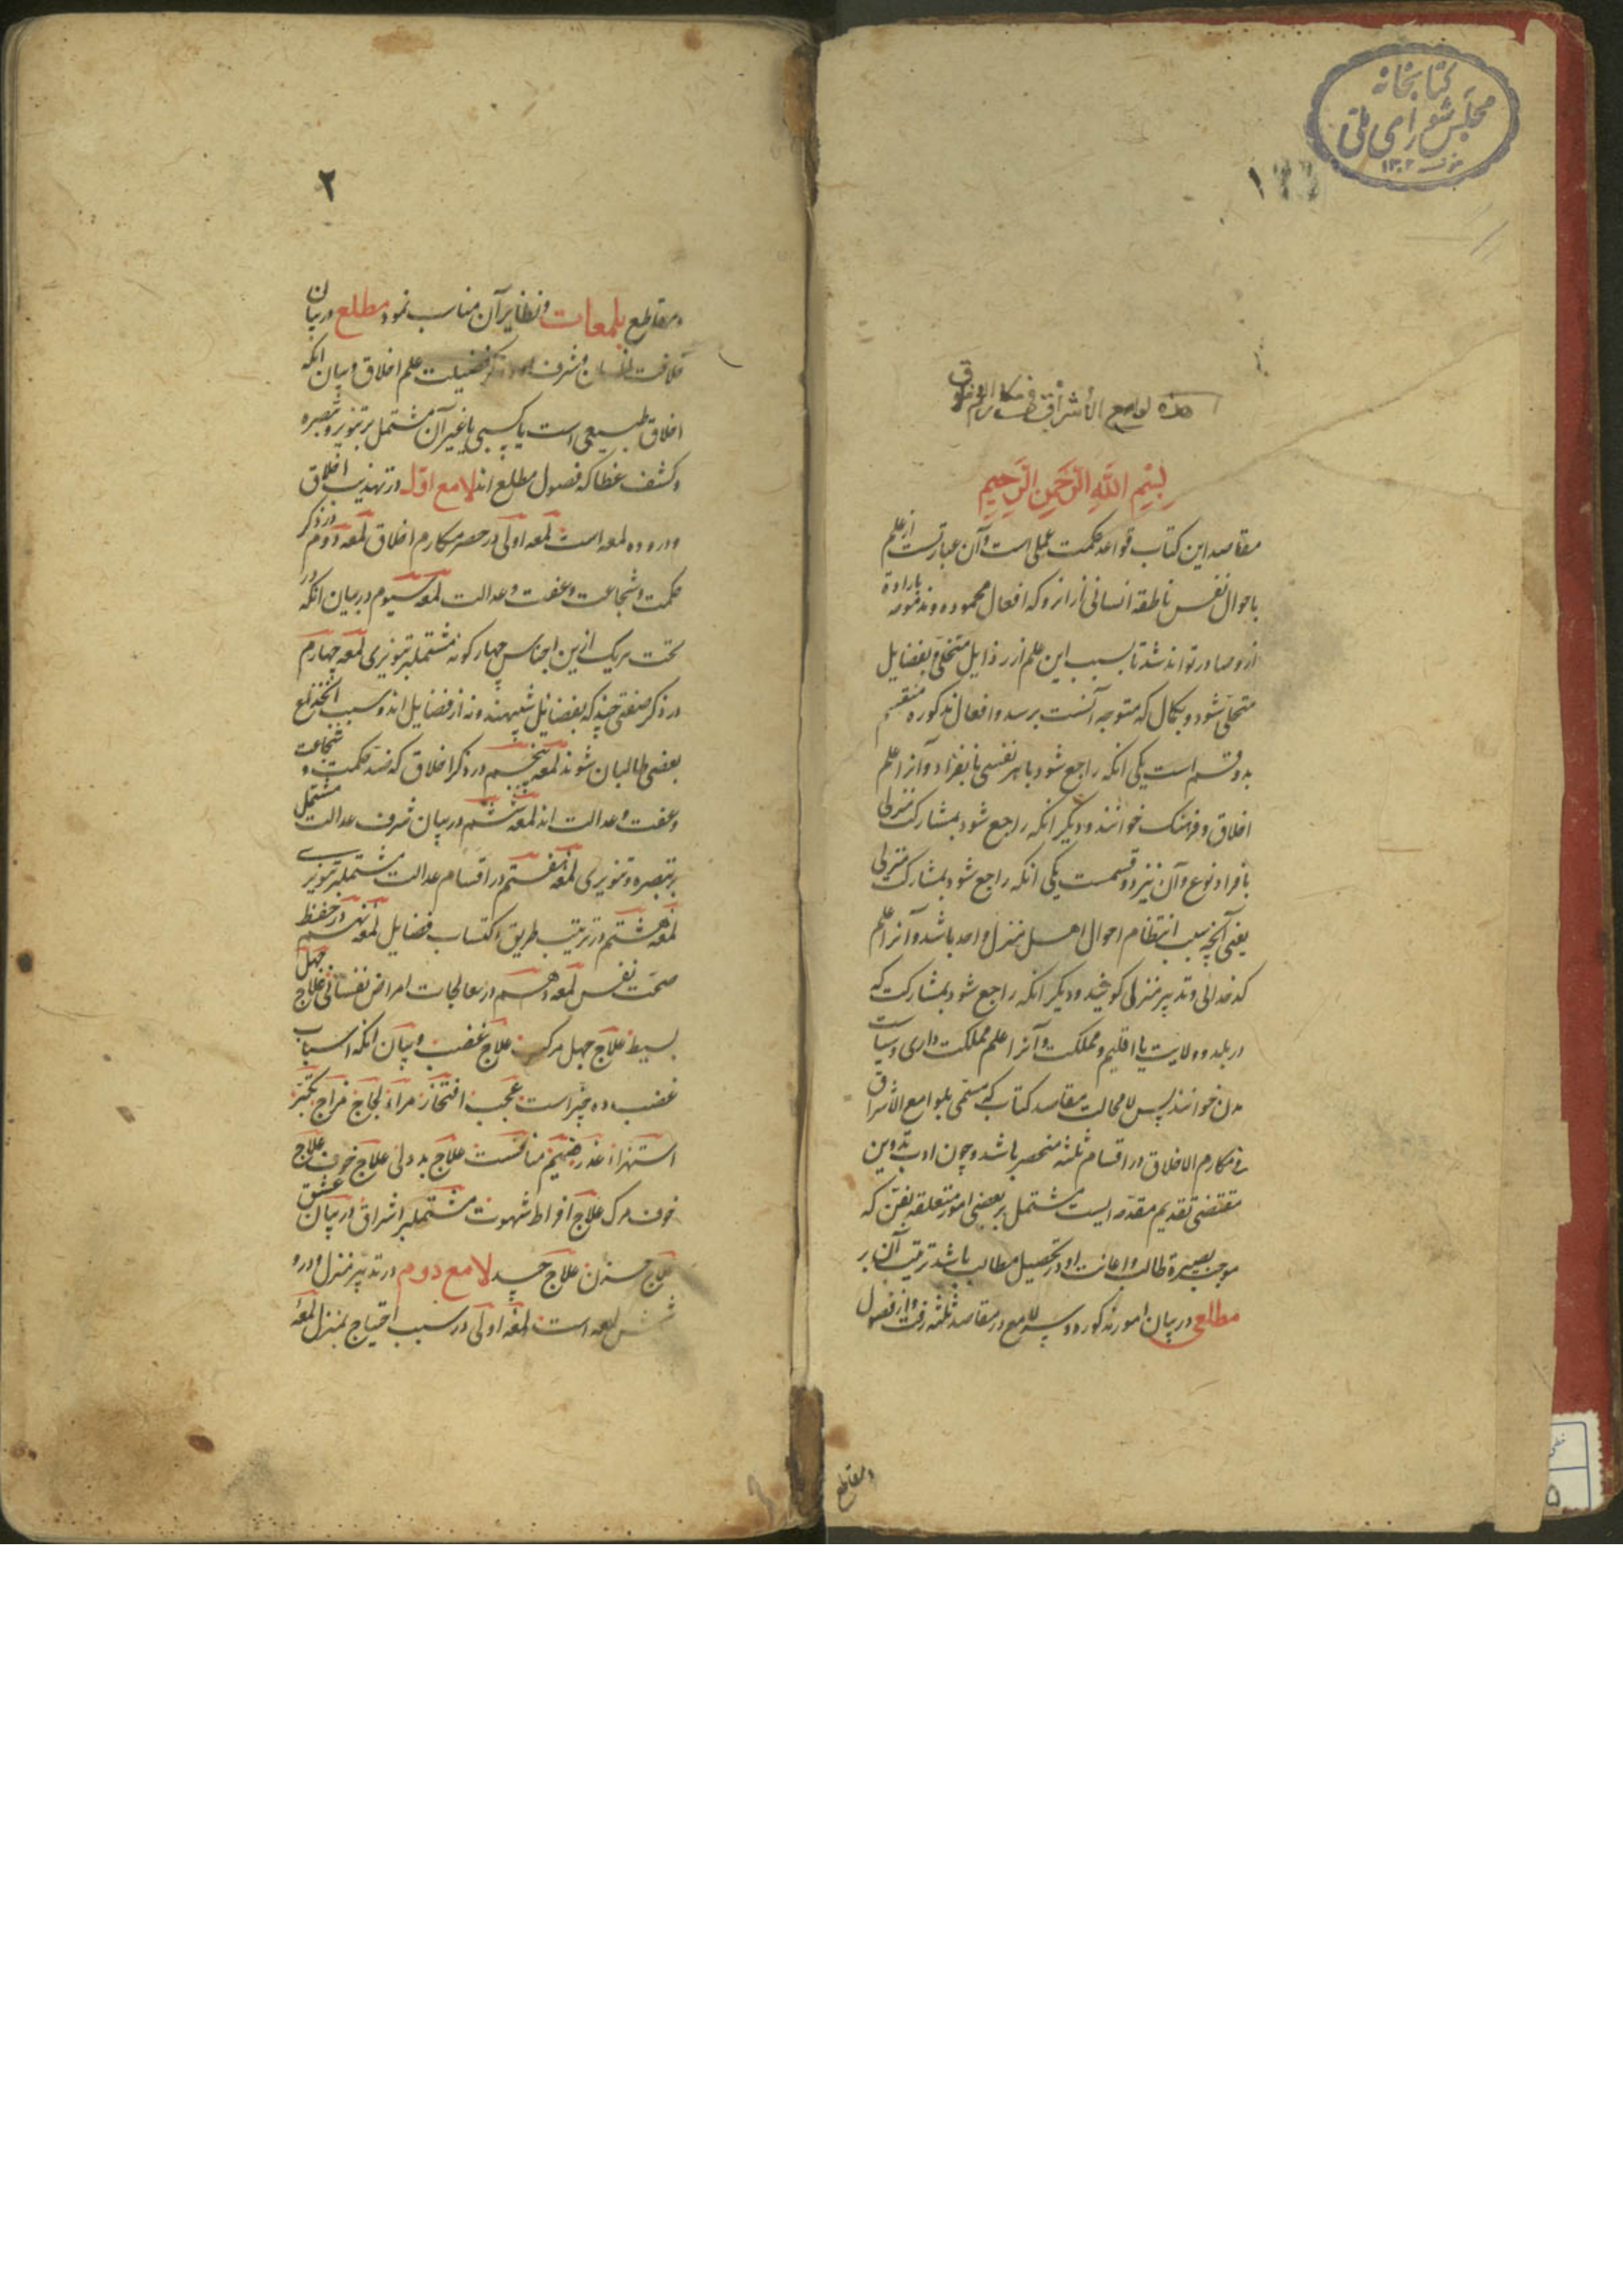 کتابخانه
مجلس شورای ملی
۱۳۰۲
۱
هذه لوامع الأشراق فی مکارم الاخلاق
بسم الله الرحمن الرحیم
مقاصد این کتاب قواعد حکمت عملی است و آن عبارتست از علم
باحوال نفس ناطقه انسانی از انرو که افعال محموده و مذمومه باراده
ازو صادر تواند شد تا بسبب این علم از رذایل متخلی و بفضایل
متحلی شود و بکمال که متوجه آنست برسد و افعال مذکوره منقسم
بدو قسم است یکی انکه راجع شود باهر نفسی بانفراد و آنرا علم
اخلاق و فرهنک خوانند و دیگر انکه راجع شود بمشارکت منزلی
بافراد نوع و آن نیز دو قسمست یکی انکه راجع شود بمشارکت منزلی
یعنی آنچه سبب انتظام احوال اهل منزل واحد باشد و آنرا علم
کدخدائی و تدبیر منزل کویند و دیکر انکه راجع شود بمشارکت که
در بلد و ولایت یا اقلیم و مملکت و آنرا علم مملکت داری و سیاست
مدن خوانند پس لا محالت مقاصد کتاب که مسمی بلوامع الاشراق
فی مکارم الاخلاق در اقسام ثلثه منحصر باشد و چون ادب تدوین
مقتضی تقدیم مقدمه ایست مشتمل بر بعضی امور متعلقه بفن که
موجب بصیرة طالب و اعانت او در تحصیل مطالب باشد ترتیب آن بر
مطلعی در بیان امور مذکوره و سه لامع در مقاصد ثلثه رفت و از فصول
و مقاطع
۲
و مقاطع بلمعات و نظایر آن مناسب نمود مطلع در بیان
خلافت انسان و شرف او و ذکر فضیلت علم اخلاق و بیان انکه
اخلاق طبیعی است یا کسبی یا غیر آن مشتمل بر تنویر و تبصره
و کشف غطا که فصول مطلع اند لامع اول در تهذیب اخلاق
و درو ده لمعه است لمعه اولی در حصر مکارم اخلاق لمعه دوم در ذکر
حکمت و شجاعت و عفت و عدالت لمعه سیوم در بیان انکه در
تحت هر یک ازین اجناس چهار کونه مشتملبر تنویری لمعه چهارم
در ذکر صنفی چند که بفضائل شبیهند و نه از فضایل اند و سبب
بعضی طالبان شوند لمعه پنجم در ذکر اخلاق که ضد حکمت و شجاعت
و عفت و عدالت اند لمعه ششم در بیان شرف عدالت مشتمل
بر تبصره و تنویری لمعه هفتم در اقسام عدالت مشتملبر تنویری
لمعه هشتم در ترتیب طریق اکتساب فضایل لمعه نهم در حفظ
صحت نفس لمعه دهم در معالجات امراض نفسانی علاج جهل
بسیط علاج جهل مرکب علاج غضب و بیان انکه اسباب
غضب ده چیز است عجب افتخار مراء لجاج مزاج تکبر
استهزاء غدر ضیم منافست علاج بددلی علاج خوف علاج
خوف مرک علاج افراط شهوت مشتملبر اشراق در بیان عشق
علاج حزن علاج حسد لامع دوم در تدبیر منزل و درو
شش لمعه است لمعه اولی در سبب احتیاج بمنزل لمعه